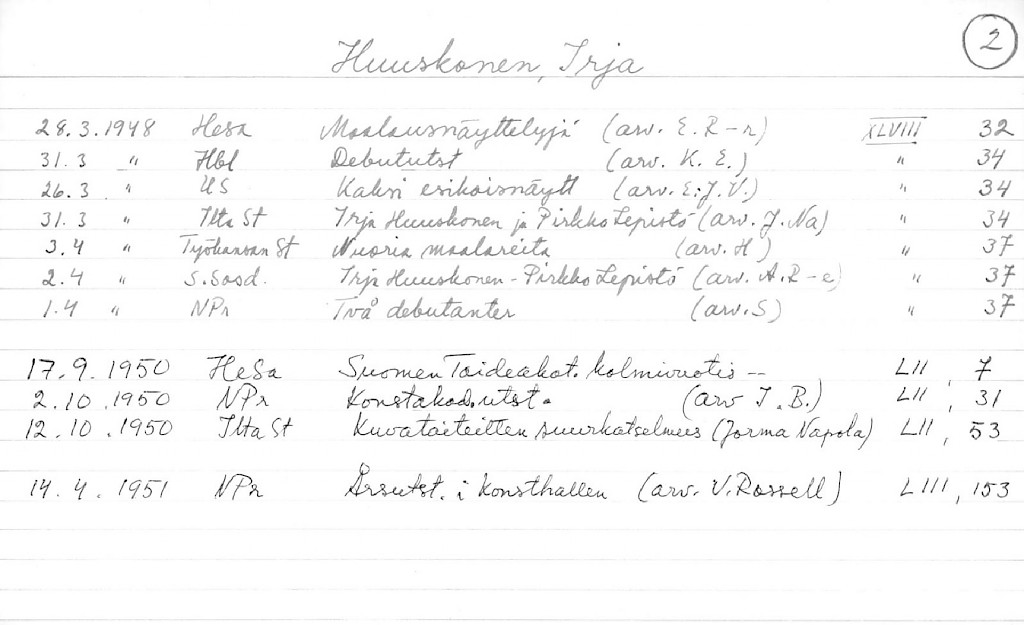 2
Huuskonen, Irja
28.3.1948 HeSa Maalausnäyttelyjä (arv. E. R-r) XLVIII 32
31.3 " Hbl Debututst (arv. K. E.) " 34
26.3. " US Kaksi esikoisnäytt (arv. E.J.V.) " 34
31.3 " Ilta St Irja Huuskonen ja Pirkko Lepistö (arv. J. Na) " 34
3.4 " Työkansan St Nuoria maalareita (arv. H) " 37
2.4 " S.Sosd. Irja Huuskonen - Pirkko Lepistö (arv. A.R-e) " 37
1.4 " NPr Två debutanter (arv. S) " 37
17.9.1950 HeSa Suomen Taideakat. kolmivuotis -- LII, 7
2.10.1950 NPr Konstakad.utst. (arv I.B.) LII, 31
12.10.1950 Ilta St Kuvataiteitten suurkatselmus (Jorma Napola) LII, 53
14.4.1951 NPr Årsutst. i Konsthallen (arv. V. Rossell) LIII, 153